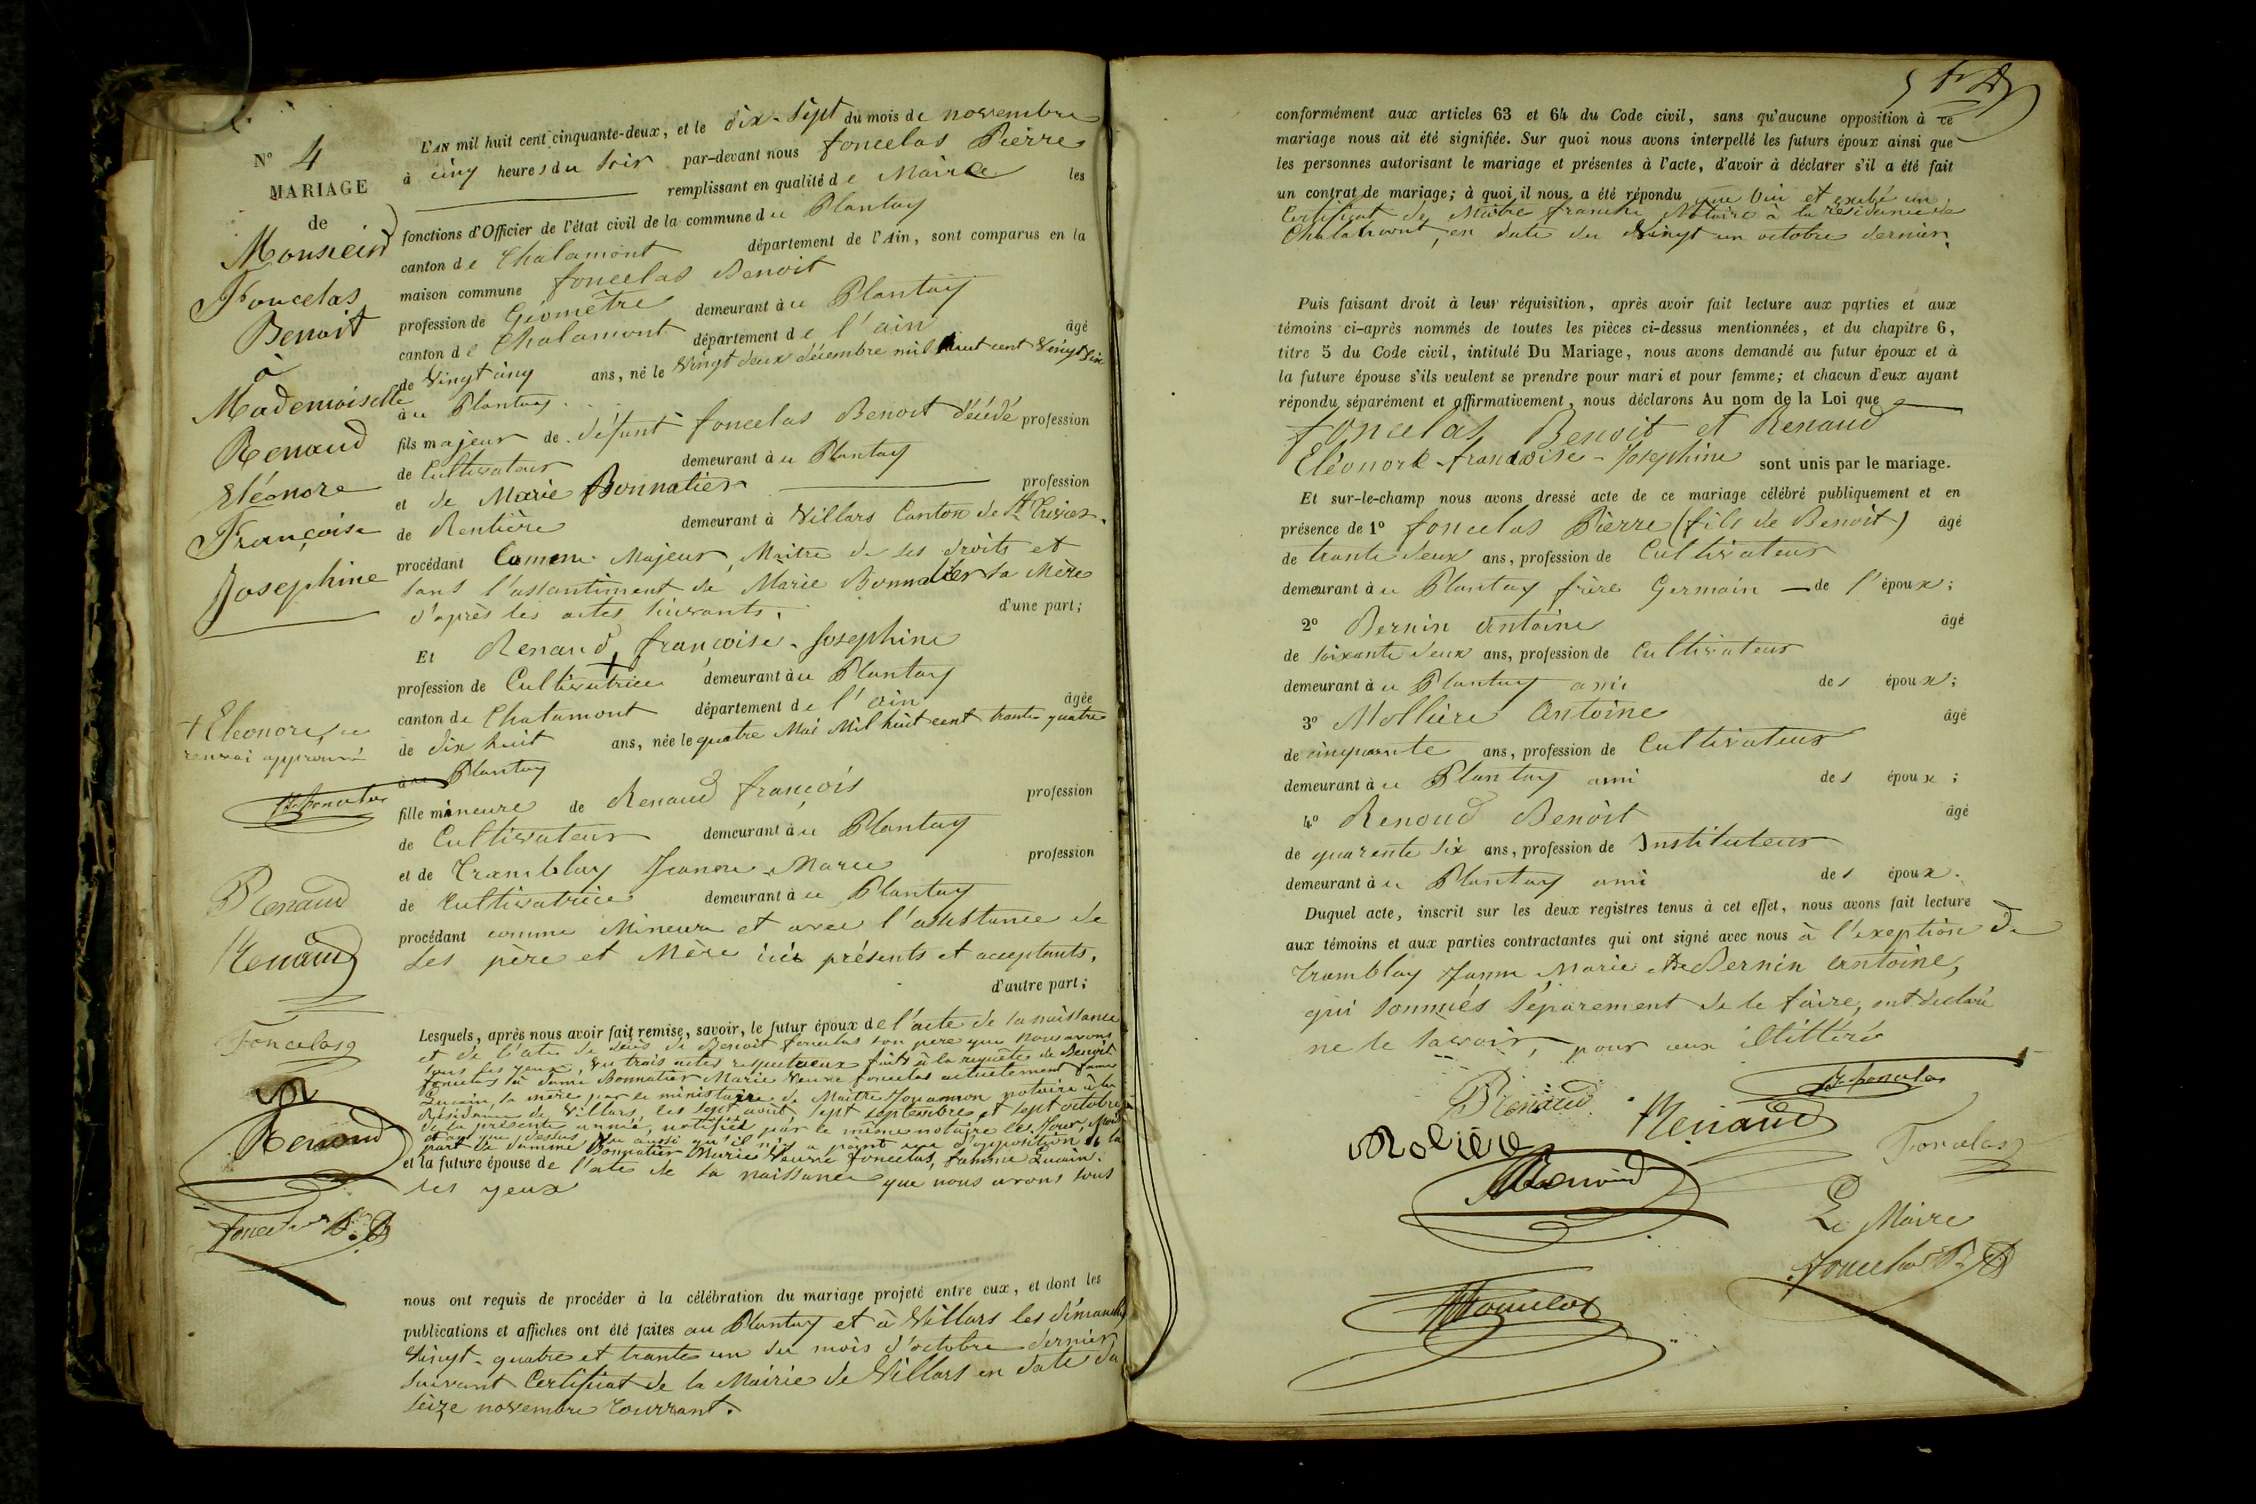 N° 4
MARIAGE
de
Monsieur
Foncelas
Benoit
à
Mademoiselle
Renaud
Eléonore
Françoise
Josephine
+ Eleonore, ce
renvoi approuvé
Renaud
Renaud
Foncelas
Renaud
L'AN mil huit cent cinquante-deux, et le dix-sept du mois de novembre
à cinq heures du soir par-devant nous foncelas Pierre
remplissant en qualité de Maire les
fonctions d'Officier de l'état civil de la commune du Plantay
canton de Chalamont département de l'Ain, sont comparus en la
maison commune foncelas Benoit
profession de Géomètre demeurant à u Plantay
canton de Chalamont département de l'ain âgé
de Vingt cinq ans, né le Vingt deux décembre mil huit cent Vingt six
au Plantay.
fils majeur de défunt foncelas Benoit décédé profession
de Cultivateur demeurant à u Plantay
et de Marie Bonnatier profession
de Rentière demeurant à Villars Canton de St Trivier.
procédant Comme Majeur, Maitre de ses droits et
sans l'assantiment de Marie Bonnatier sa Mère
d'après les actes suivants. d'une part;
Et Renaud + françoise-Josephine
profession de Cultivatrice demeurant à u Plantay
canton de Chalamont département de l'ain âgée
de dix huit ans, née le quatre Mai Mil huit cent trante quatre
au Plantay
fille mineure de Renaud françois profession
de Cultivateur demeurant à u Plantay
et de Tramblay Jeanne-Marie profession
de Cultivatrice demeurant à u Plantay
procédant comme Mineure et avec l'assistance de
Ses père et Mère ici présents et acceptants.
d'autre part;
Lesquels, après nous avoir fait remise, savoir, le futur époux de l'acte de sa naissance
et de l'acte de décès de Benoit foncelas son père que nous avons
sous les yeux, des trois actes respectueux faits à la requête de Benoit
foncelas à dame Bonnatier Marie Veuve foncelas actuellement famme
Lucain, sa mère par le ministaire de Maitre Jouannon notaire à la
Résidance de Villars, les sept août, sept septembre et sept octobre
de la présente année, notifiés par le même notaire les Jour, Mois
et an que dessus, Vu aussi qu'il n'y a point eu d'opposition de la
part de damme Bonnatier Marie Veuve foncelas, famme Lucain.
et la future épouse de l'acte de sa naissance que nous avons sous
les yeux
nous ont requis de procéder à la célébration du mariage projeté entre eux, et dont les
publications et affiches ont été faites au Plantay et à Villars les dimanches
Vingt-quatre et trante un du mois d'octobre dernier
suivant Certificat de la Mairie de Villars en date du
seize novembre courrant.
conformément aux articles 63 et 64 du Code civil, sans qu'aucune opposition à ce
mariage nous ait été signifiée. Sur quoi nous avons interpellé les futurs époux ainsi que
les personnes autorisant le mariage et présentes à l'acte, d'avoir à déclarer s'il a été fait
un contrat de mariage; à quoi il nous a été répondu que Oui et exibé un
Certificat de Maitre Notaire à la résidance de
Chalamont, en date du Vingt un octobre dernier.
Puis faisant droit à leur réquisition, après avoir fait lecture aux parties et aux
témoins ci-après nommés de toutes les pièces ci-dessus mentionnées, et du chapitre 6,
titre 5 du Code civil, intitulé Du Mariage, nous avons demandé au futur époux et à
la future épouse s'ils veulent se prendre pour mari et pour femme; et chacun d'eux ayant
répondu séparément et affirmativement, nous déclarons Au nom de la Loi que
foncelas Benoit et Renaud
Eléonore-francoise-Josephine sont unis par le mariage.
Et sur-le-champ nous avons dressé acte de ce mariage célébré publiquement et en
présence de 1° foncelas Pierre (fils de Benoit) âgé
de trante deux ans, profession de Cultivateur
demeurant à u Plantay frère Germain de l'époux;
2° Bernin Antoine âgé
de soixante deux ans, profession de Cultivateur
demeurant à u Plantay ami des époux;
3° Mollière Antoine âgé
de cinquante ans, profession de Cultivateur
demeurant à u Plantay ami des époux;
4° Renoud Benoit âgé
de quarente six ans, profession de Instituteur
demeurant à u Plantay ami des époux.
Duquel acte, inscrit sur les deux registres tenus à cet effet, nous avons fait lecture
aux témoins et aux parties contractantes qui ont signé avec nous à l'exeption de
Tramblay Jeanne Marie et de Bernin Antoine,
qui sommés séparement de le faire, ont declaré
ne le savoir, pour eux illitéré
Renaud
Renaud
Molière
Foncelas
Renoud
Le Maire
Foncelas